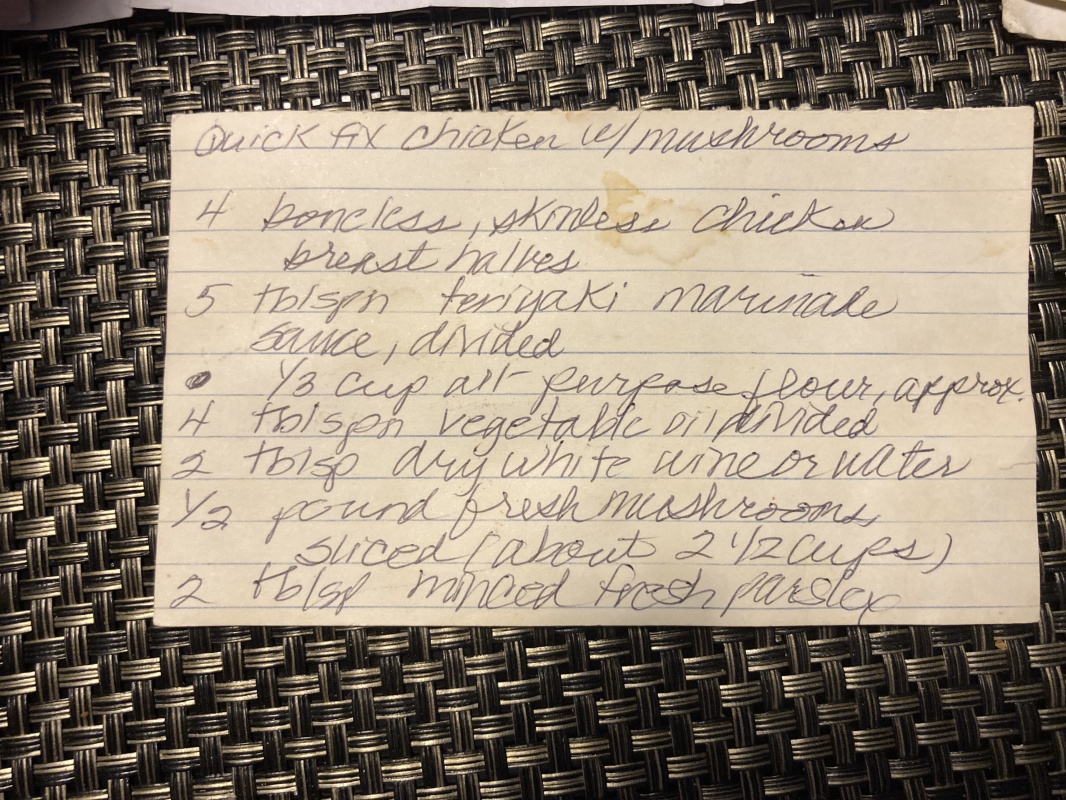 Quick fix chicken w/ mushrooms
4 boneless, skinless chicken
breast halves
5 tblspn teriyaki marinade
sauce, divided
1/3 cup all-purpose flour, approx.
4 tblspn vegetable oil divided
2 tblsp dry white wine or water
1/2 pound fresh mushrooms
sliced (about 2 1/2 cups)
2 tblsp minced fresh parsley